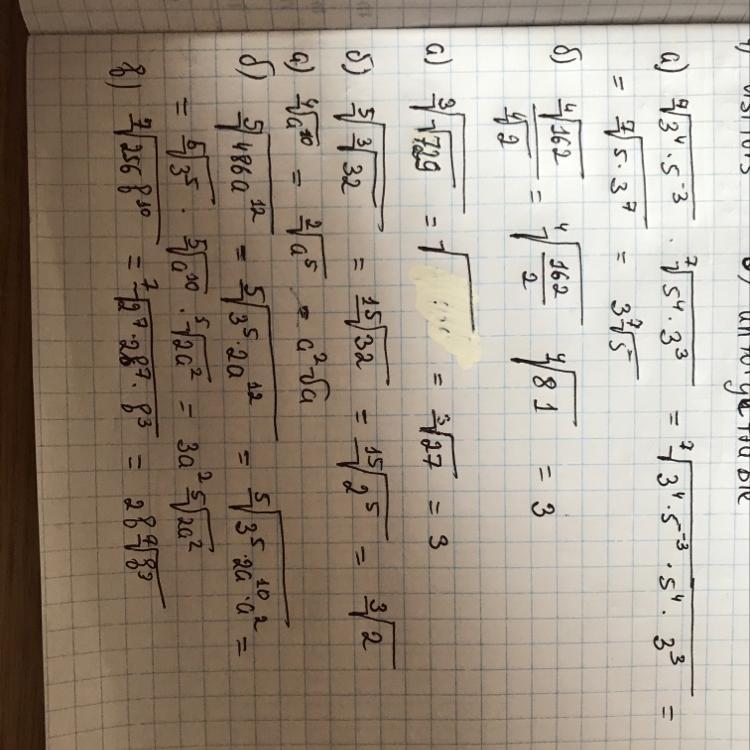 а) ⁷√(3⁴·5⁻³) · ⁷√(5⁴·3³) = ⁷√(3⁴·5⁻³·5⁴·3³) =
= ⁷√(5·3⁷) = 3⁷√5
б) ⁴√162 / ⁴√2 = ⁴√(162/2) ⁴√81 = 3
а) ³√√729 = √ = ³√27 = 3
б) ⁵√³√32 = ¹⁵√32 = ¹⁵√2⁵ = ³√2
а) ⁴√a¹⁰ = ²√a⁵ = a²√a
б) ⁵√(486a¹²) = ⁵√(3⁵·2a¹²) = ⁵√(3⁵·2a¹⁰·a²) =
= ⁵√3⁵ · ⁵√a¹⁰ · ⁵√2a² = 3a² ⁵√2a²
в) ⁷√(256в¹⁰) = ⁷√(2⁷·2в⁷·в³) = 2в ⁷√в³